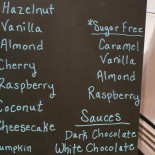 Hazelnut
Vanilla
Almond
Cherry
Raspberry
Coconut
Cheesecake
umpkin
*Sugar Free
Caramel
Vanilla
Almond
Raspberry
Sauces
Dark Chocolate
White Chocolate